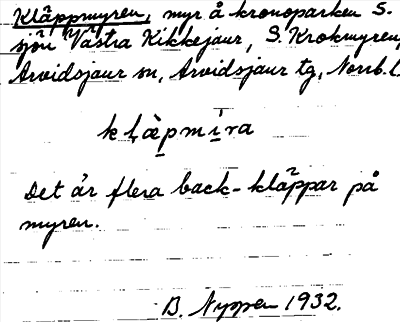 Kläppmyren, myr å kronoparken S.
sjön Västra Kikkejaur, S. Krokmyren,
Arvidsjaur sn, Arvidsjaur tg, Norrb. l
klæpmira
Det är flera back-kläppar på
myren.
B. Nyppen 1932.